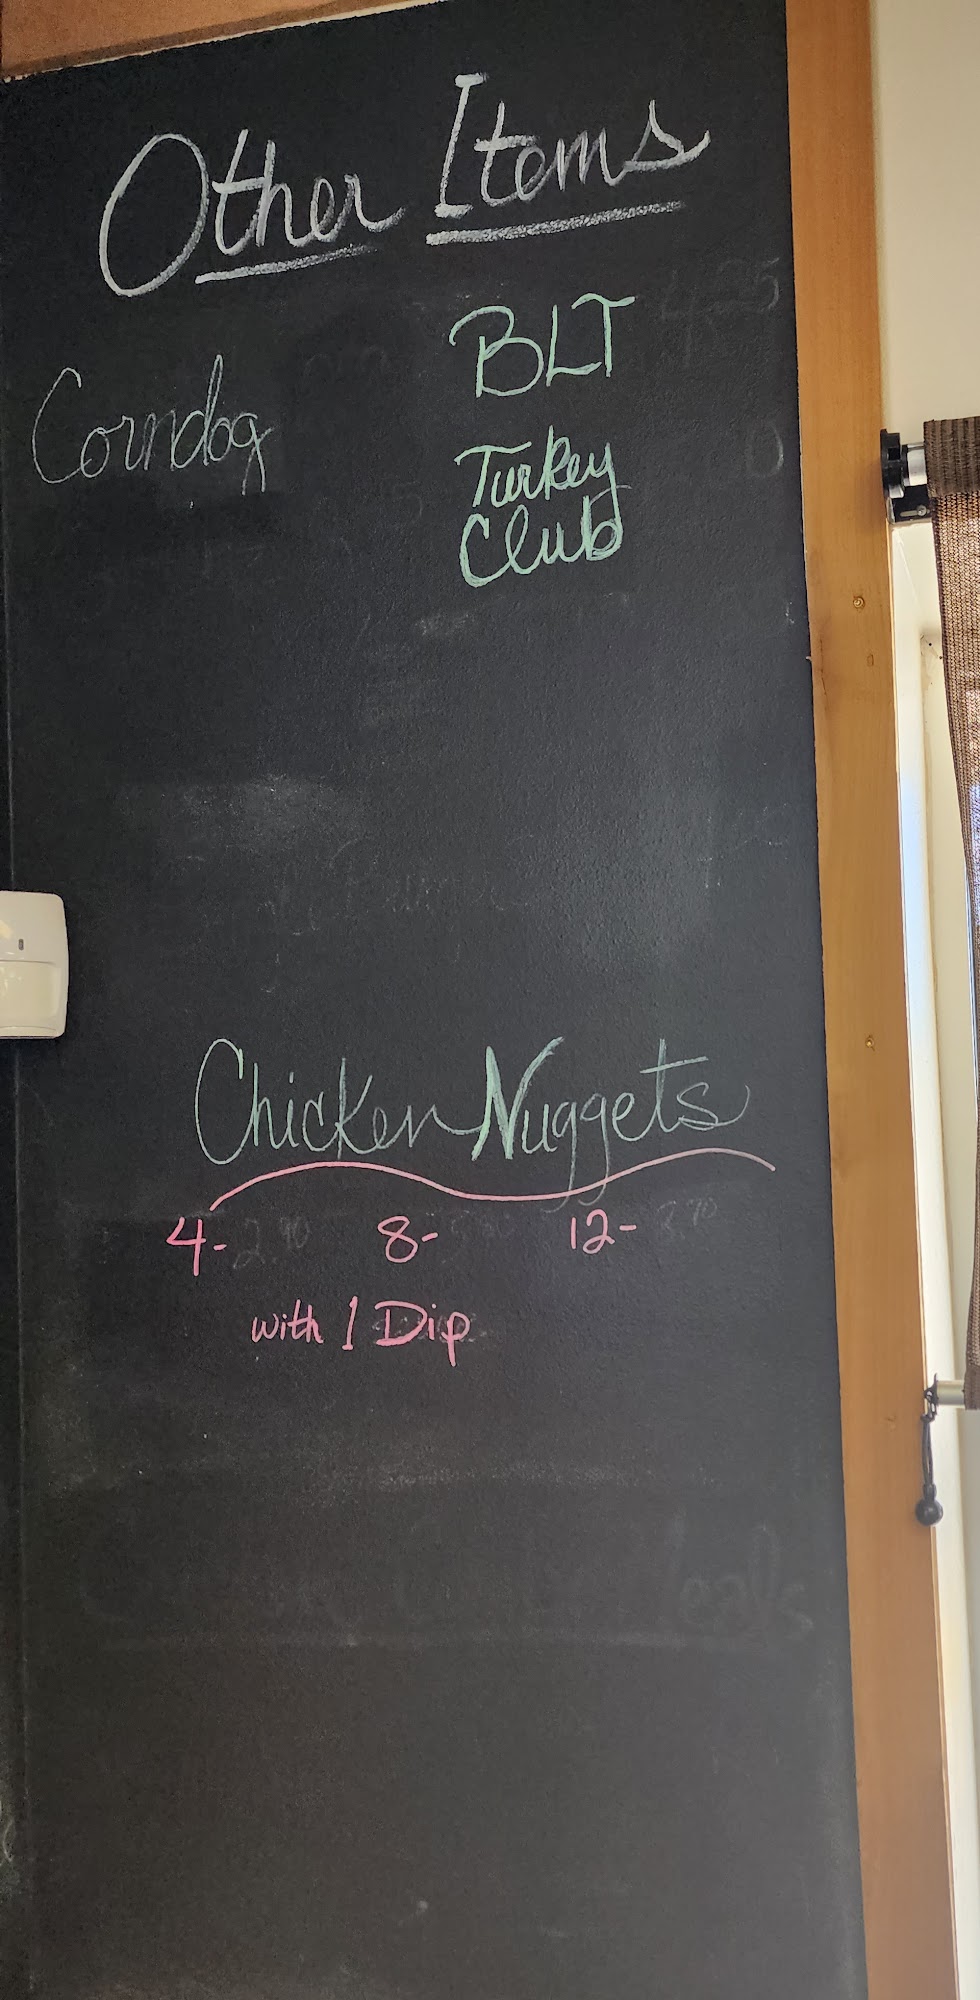 Other Items
Corndog
BLT
Turkey
Club
Chicken Nuggets
4- 8- 12-
with 1 Dip